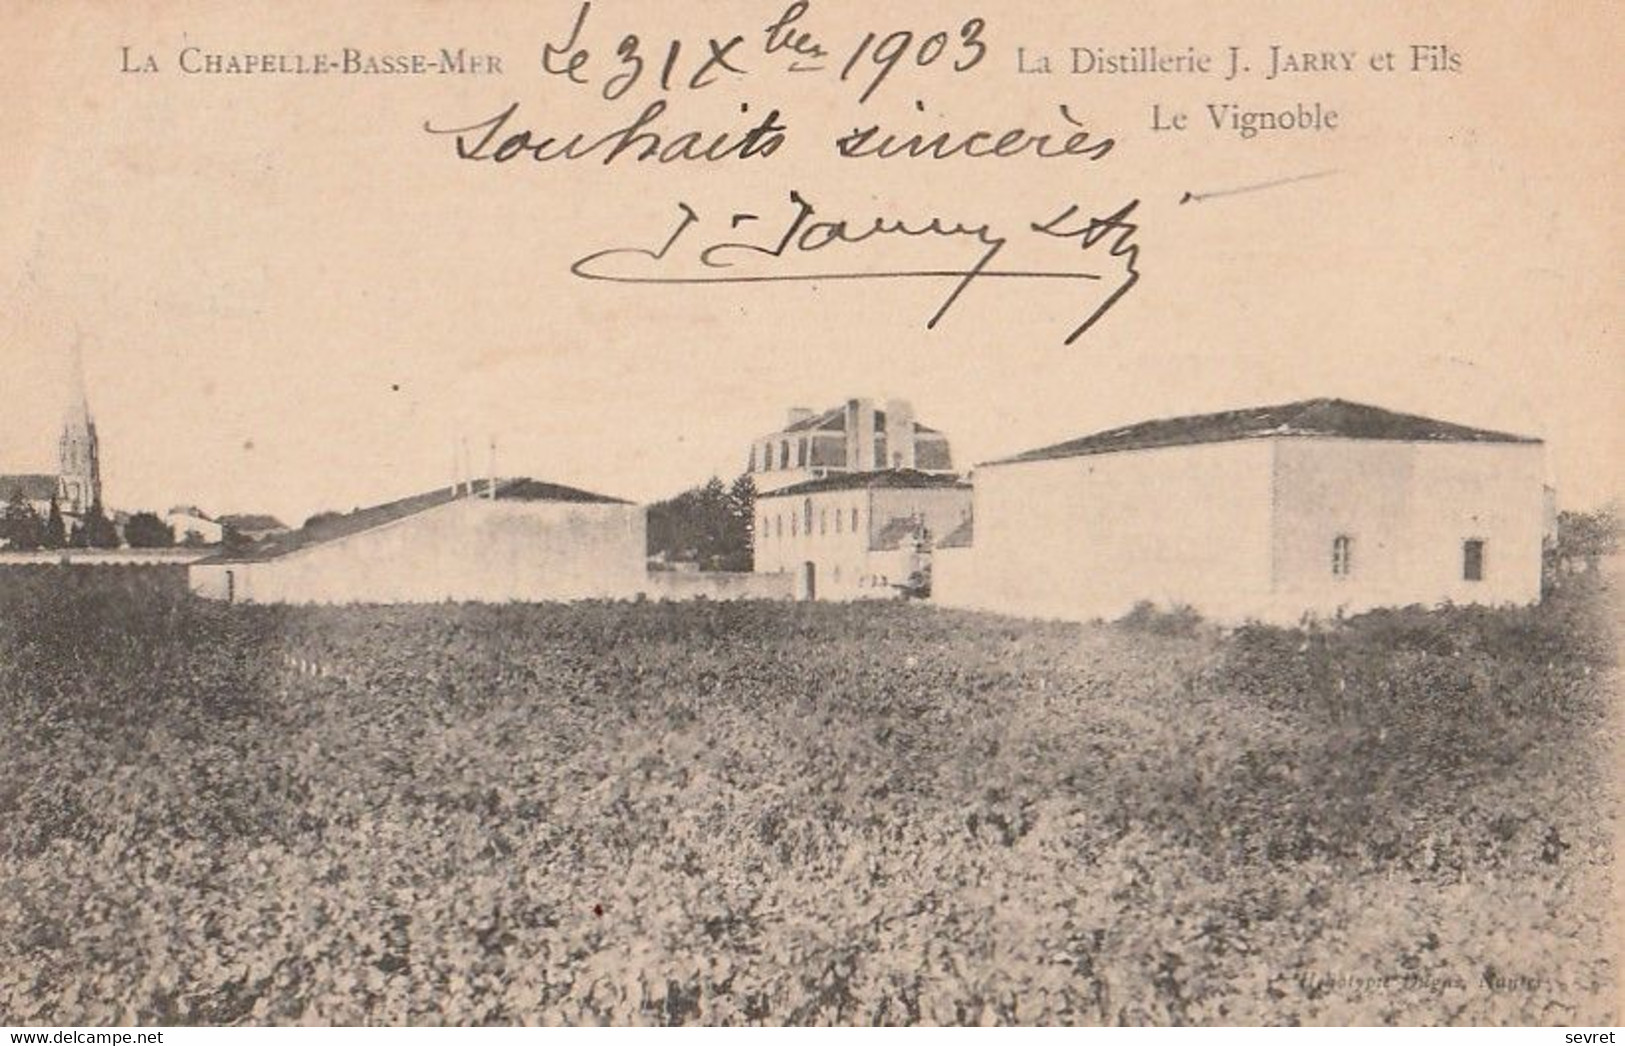 LA CHAPELLE-BASSE-MER
Le 31 Xbre 1903
La Distillerie J. JARRY et Fils
Le Vignoble
Souhaits sincères
J. Jarry & fils
Dugas, Nantes
delcampe.net
sevret